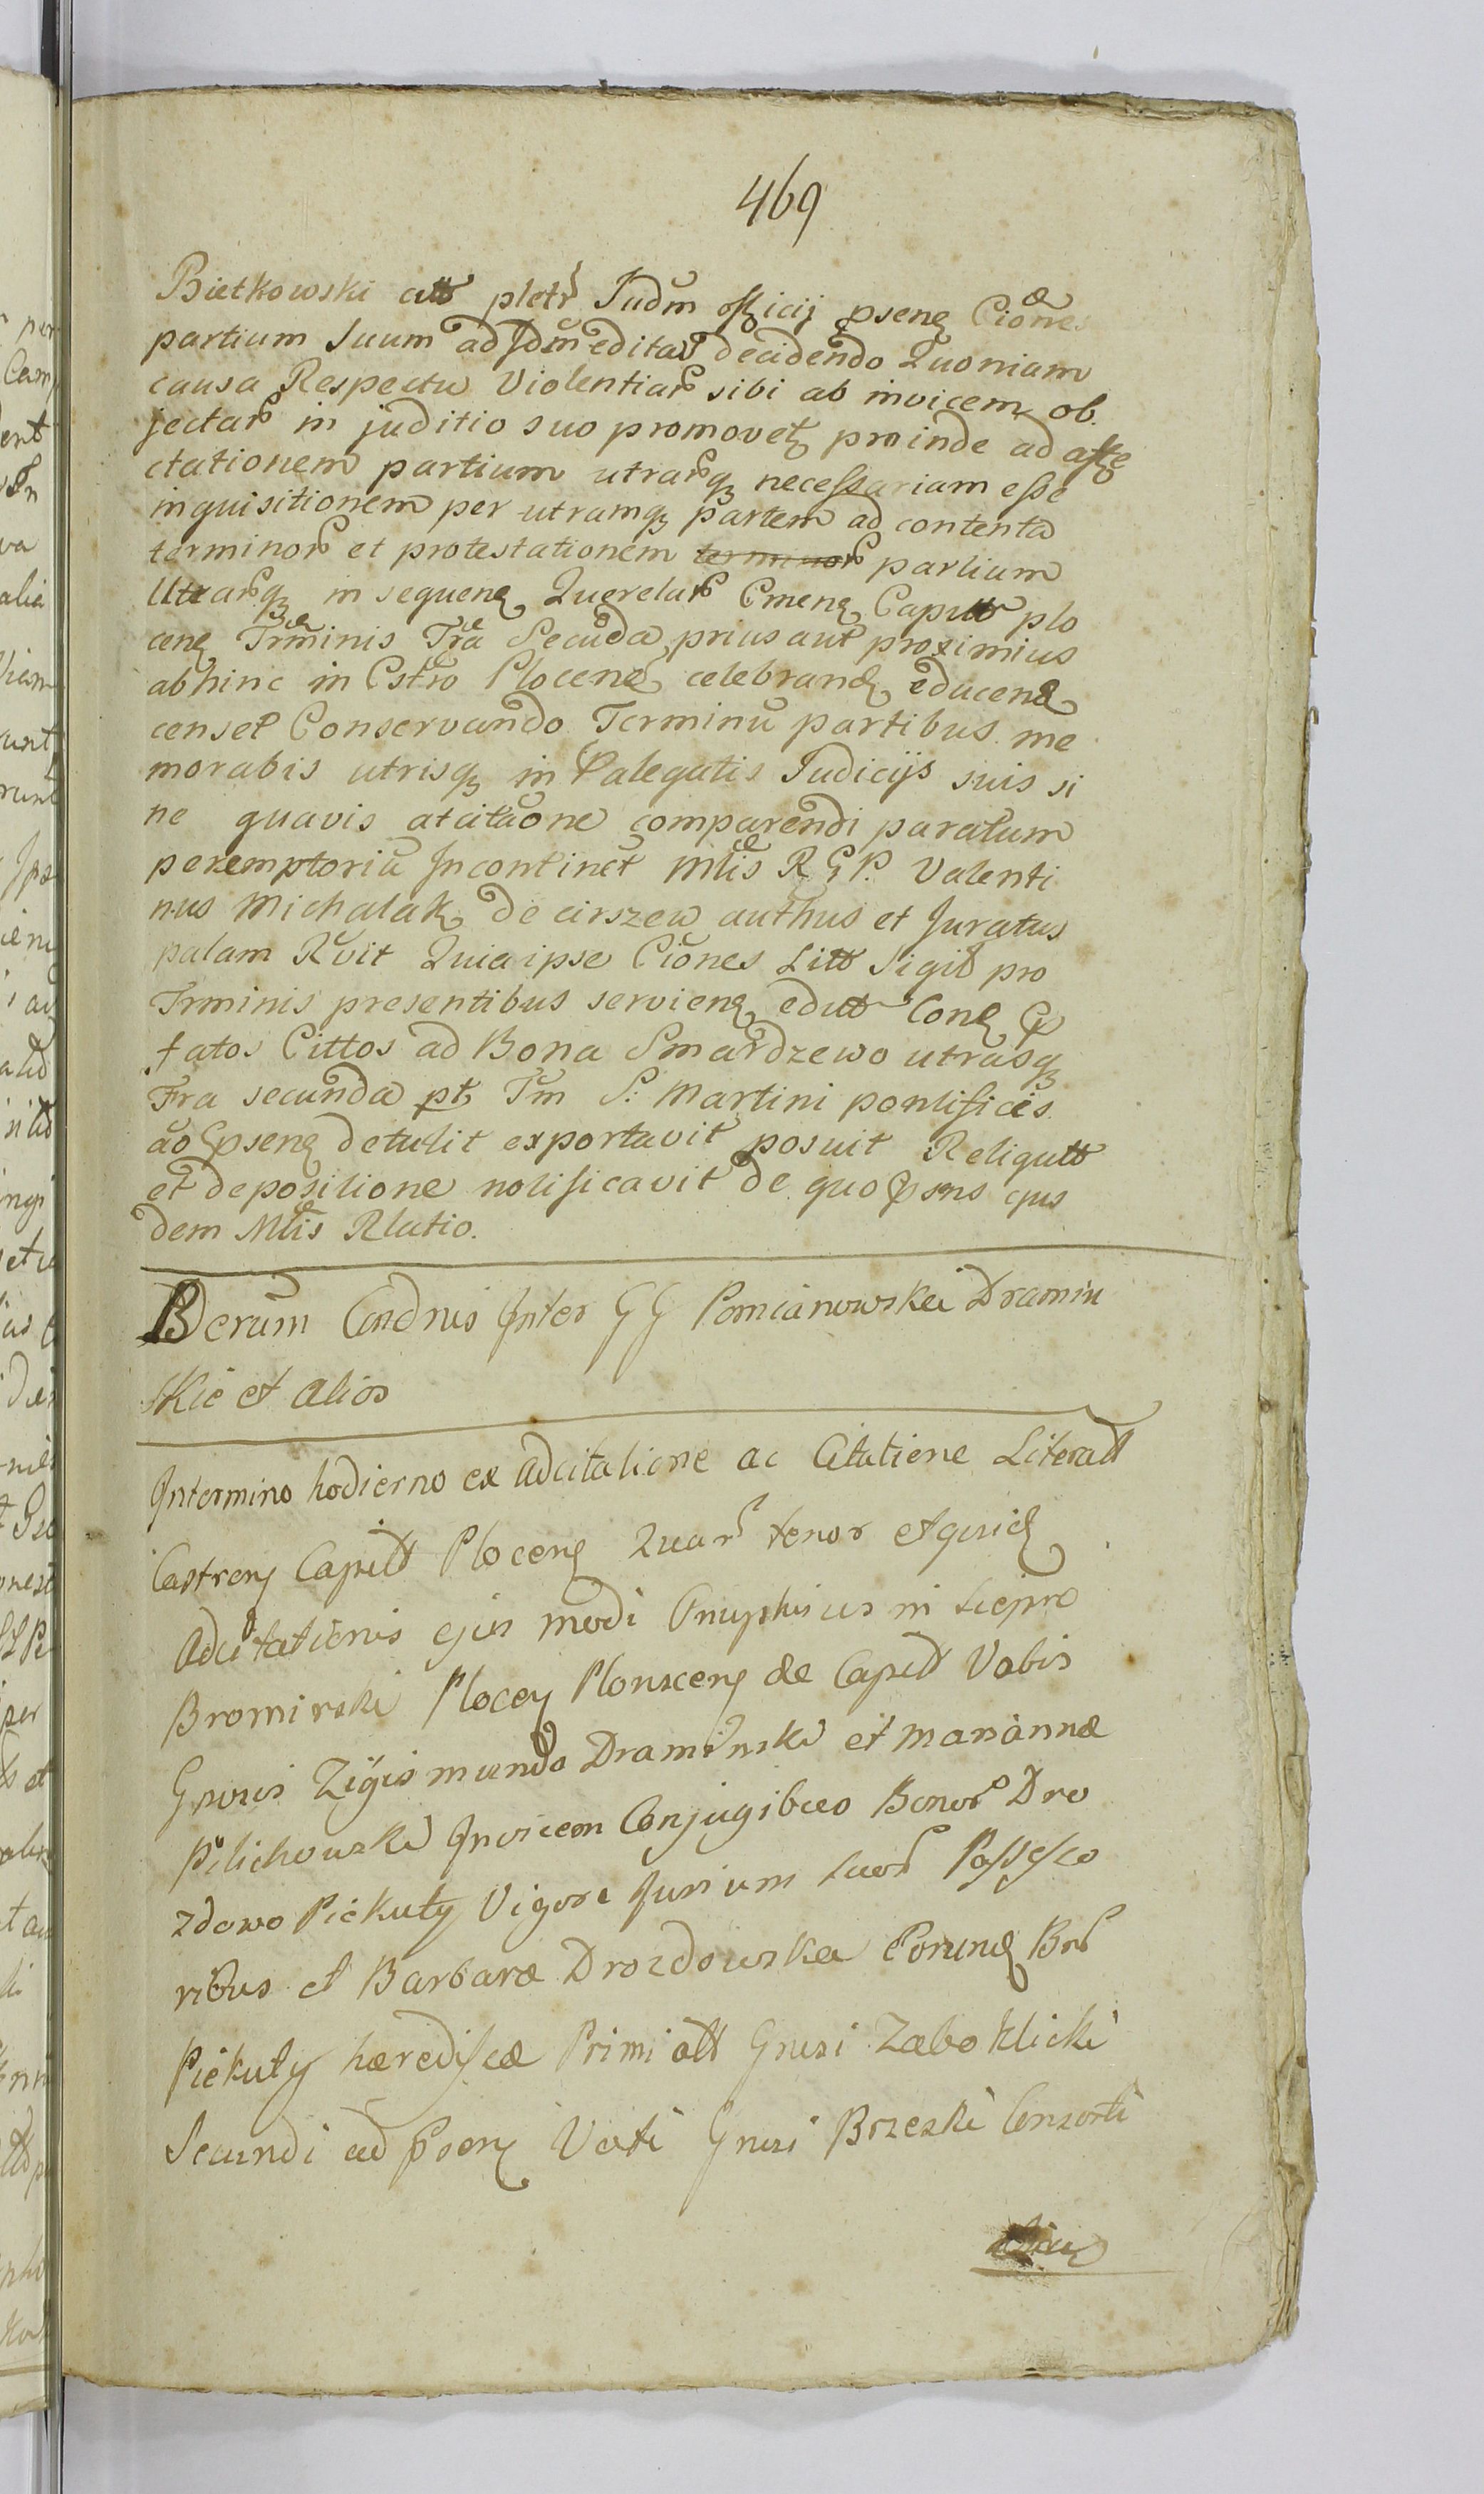 469
Bietkowski citt pletr Judm officij psenq Ciones
partium suum ad Idm editar decidendo Quoniam
causa Respectu Violentiar sibi ab invicem ob
jectar in juditio suo promovetz proinde ad affe
ctationem partium utrarq necessariam esse
inquisitionem per utramq partem ad contenta
terminor et protestationem terminor partium
Utrarq in sequenq Querelar Cmenq Capitt plo
cenq Trminis Fra Secuda prius aut proximius
abhinc in Cstro Plocenq celebrand educend
censet Conservando Terminu partibus me
morabis utrisq in Palegatis Judicijs suis si
ne quavis atcitaone comparendi paratum
peremptoriu Incontinet Mlis R G P. Valenti
nus Michalak de cirszew authus et Juratus
palam Rvit Quia ipse Ciones Litt Sigil pro
Trminis presentibus servienq editt Conq P
fatos Cittos ad Bona Smardzewo utrasq
Fra secunda pt Fm S: Martini pontificis
ao psenq detulit exportavit posuit Reliqutt
et depositione notificavit de quo psns ejus
dem Mlis Rlatio.
Bderum Condnis Inter G G Pomianowskei Dramin
skie et alios
Intermino hodierno ex adcitatione ac Citatione Literatt
Castrenq Capitt Plocenq Quar tenor
Adcitationis ejus modi Onuphrius in Liepro
Bromirski Plocen Plonscenq de Capitt Vobis
Gnosis Zigismundo Draminski et Mariannæ
Pilichowska Invicem Conjugibus Bonor Dro
zdowo Piekuty Vigore Jurium suor Possesso
ribus et Barbaræ Drozdowska Eorunq Bnr
Piekuty hæredissæ Primi ott Gnosi Zaboklicki
Secundi ad psenq Voti Gnosi Brzeski Consorti